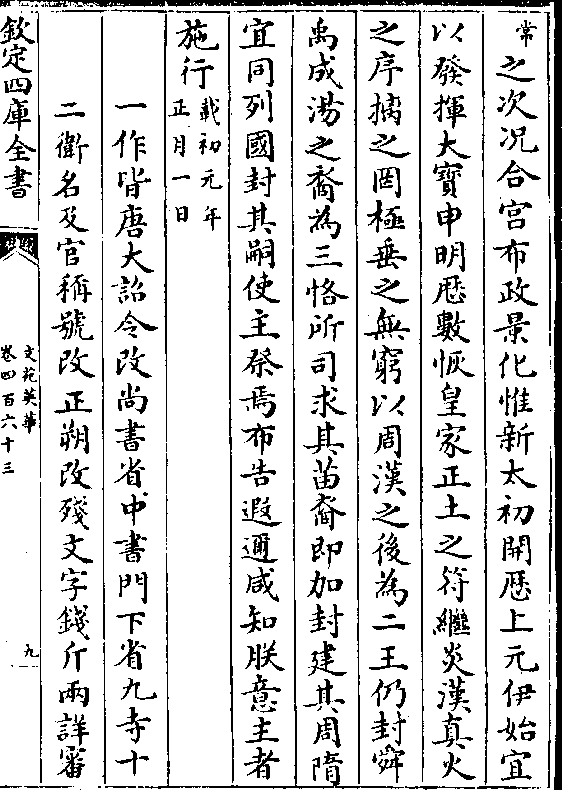 常之次况合宫布政景化惟新太初開厯上元伊始宜
以發揮大寶申明厯數恢皇家正土之符繼炎漢真火
之序摛之罔極垂之無窮以周漢之後為二王仍封舜
禹成湯之裔為三恪所司求其苗裔即加封建其周隋
宜同列國封其嗣使主祭焉布告遐邇咸知朕意主者
施行載初元年
正月一日
一作皆唐大詔令改尚書省中書門下省九寺十
二衛名及官稱號改正朔改殘文字錢斤兩詳審
欽定四庫全書
文苑英華
卷四百六十三
九